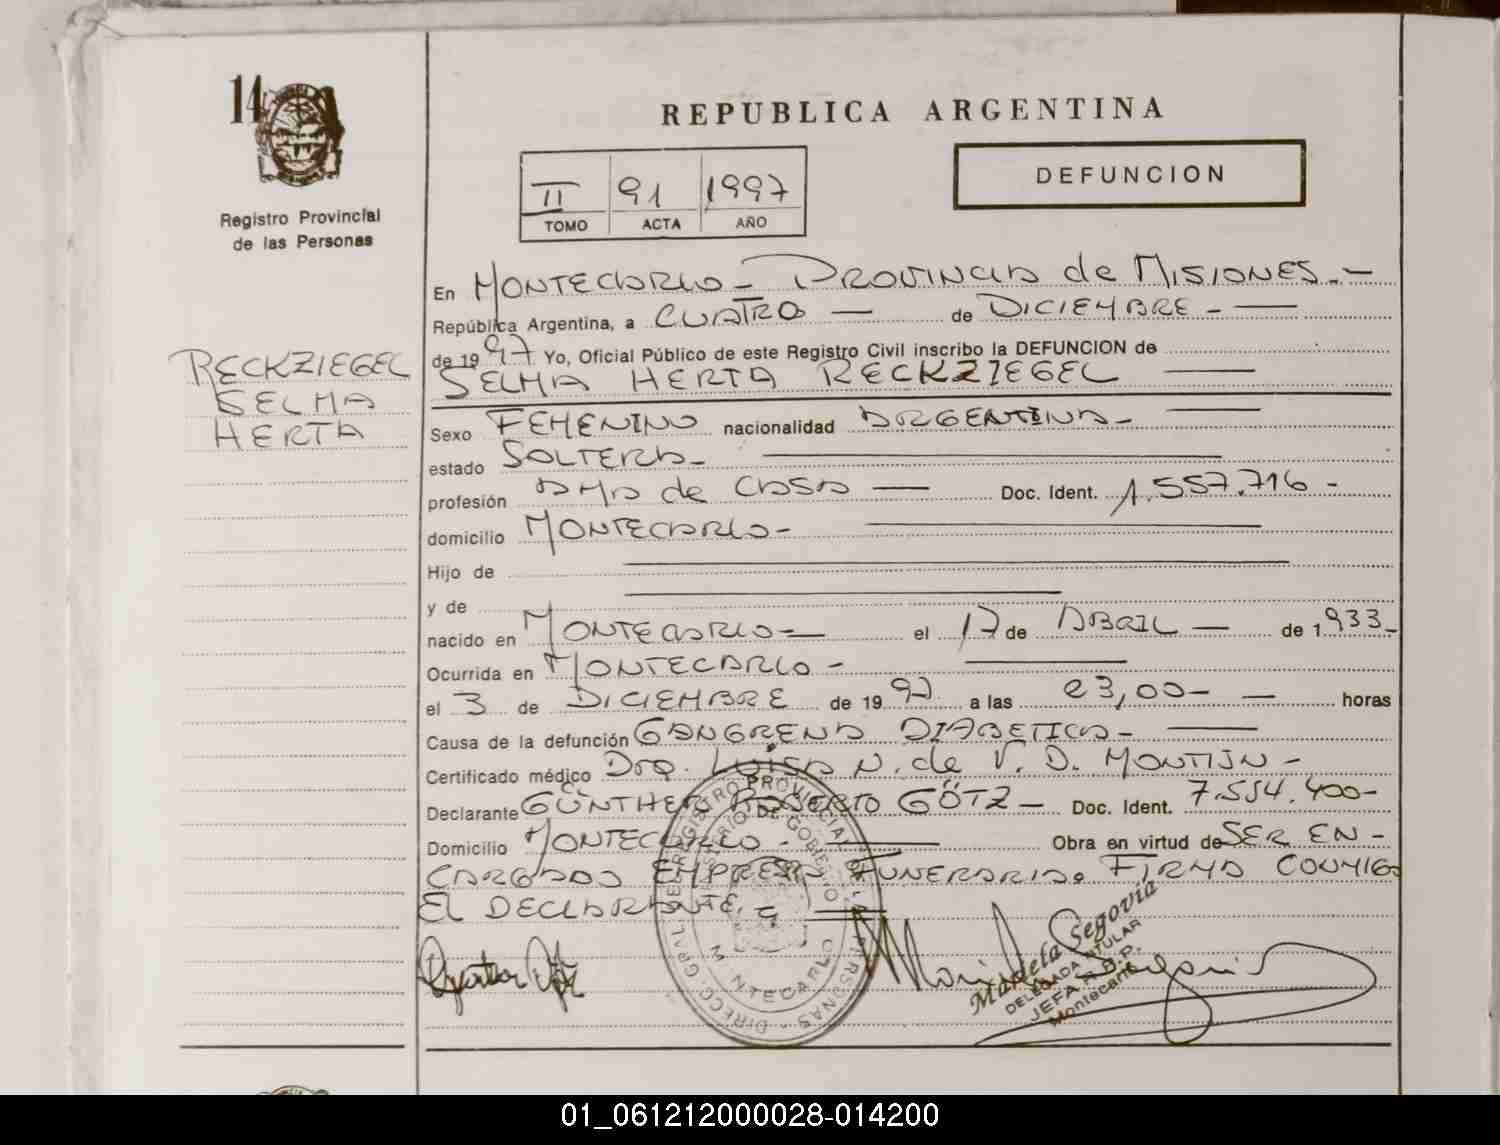 14
Registro Provincial
de las Personas
RECKZIEGEL
SELMA
HERTA
REPUBLICA ARGENTINA
II 91 1997
TOMO ACTA AÑO
DEFUNCION
En MONTECARLO - PROVINCIA de MISIONES.-
República Argentina, a CUATRO — de DICIEMBRE -
de 1997 Yo, Oficial Público de este Registro Civil inscribo la DEFUNCION de
SELMA HERTA RECKZIEGEL —
Sexo FEMENINO nacionalidad ARGENTINA -
estado SOLTERA -
profesión AMA de CASA — Doc. Ident. 1.557.716 -
domicilio MONTECARLO -
Hijo de
y de
nacido en MONTECARLO - el 17 de ABRIL — de 1933 -
Ocurrida en MONTECARLO -
el 3 de DICIEMBRE de 1997 a las 23,00 - horas
Causa de la defunción GANGRENA DIABETICA -
Certificado médico Dra. LUISA N. de V. D. MONTIJN -
Declarante GÜNTHER ROBERTO GÖTZ — Doc. Ident. 7.554.400 -
Domicilio MONTECARLO - Obra en virtud de SER EN -
CARGADO EMPRESA FUNERARIA. FIRMA CONMIGO
EL DECLARANTE.
DIRECC. GRAL. DE REGISTRO PROVINCIAL DE LAS PERSONAS
MINISTERIO DE GOBIERNO
MONTECARLO
Mariela Segovia
DELEGADA TITULAR
JEFA R.P.P.
Montecarlo
01_061212000028-014200